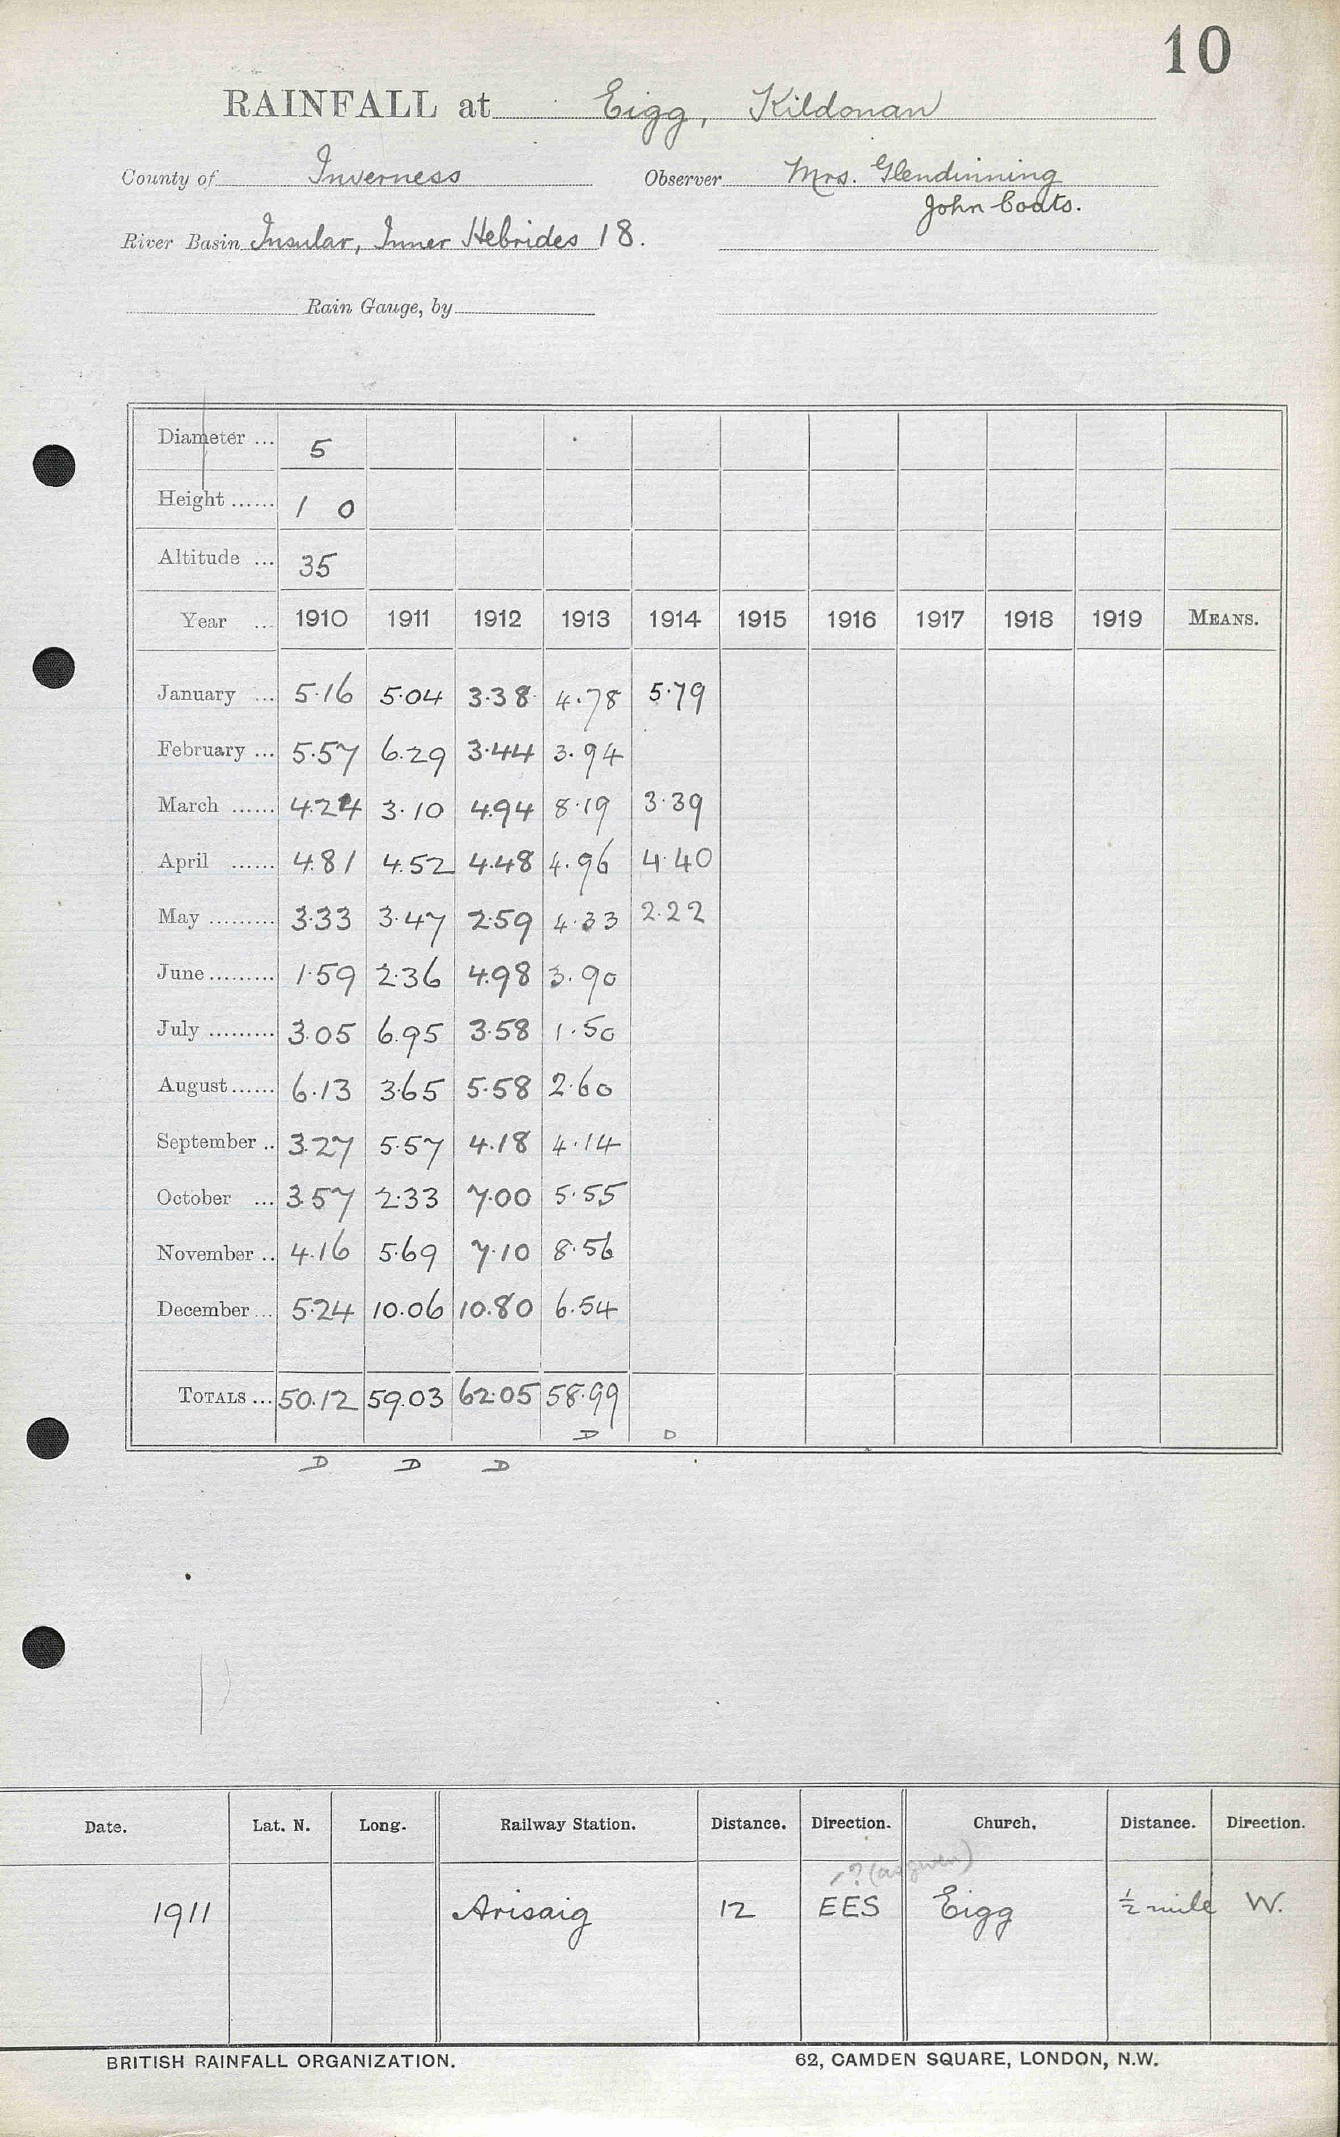 10
RAINFALL at Eigg, Kildonan
County of Inverness Observer Mrs. Glendinning
John Coats.
River Basin Insular, Inner Hebrides 18.
Rain Gauge, by
Diameter ... 5
Height ...... 1 0
Altitude ... 35
Year ... 1910 1911 1912 1913 1914 1915 1916 1917 1918 1919 MEANS.
January ... 5.16 5.04 3.38 4.78 5.79
February ... 5.57 6.29 3.44 3.94
March ...... 4.24 3.10 4.94 8.19 3.39
April ...... 4.81 4.52 4.48 4.96 4.40
May ......... 3.33 3.47 2.59 4.33 2.22
June ......... 1.59 2.36 4.98 3.90
July ......... 3.05 6.95 3.58 1.50
August ...... 6.13 3.65 5.58 2.60
September .. 3.27 5.57 4.18 4.14
October ... 3.57 2.33 7.00 5.55
November .. 4.16 5.69 7.10 8.56
December ... 5.24 10.06 10.80 6.54
TOTALS ... 50.12 59.03 62.05 58.99
D D
D D D
Date. Lat. N. Long. Railway Station. Distance. Direction. Church. Distance. Direction.
? (as given)
1911 Arisaig 12 EES Eigg ½ mile W.
BRITISH RAINFALL ORGANIZATION. 62, CAMDEN SQUARE, LONDON, N.W.